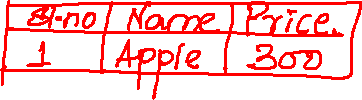 Sl.no Name Price.
1 Apple 300